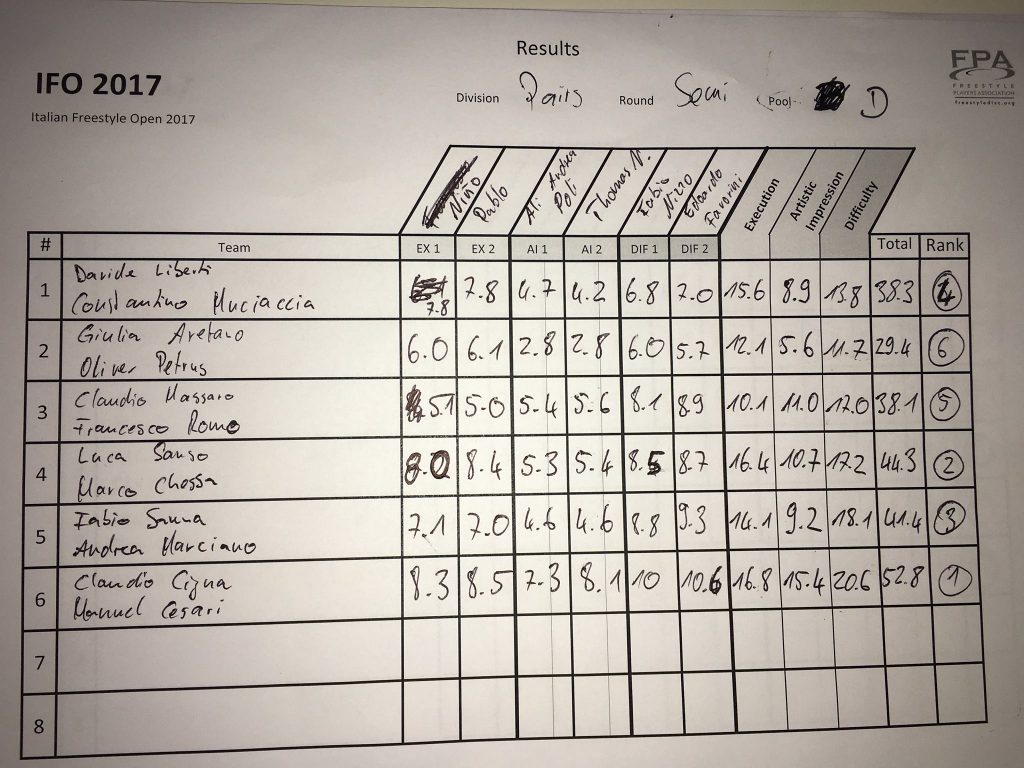 Results
IFO 2017
Italian Freestyle Open 2017
Division Pairs Round Semi Pool D
FPA
FREESTYLE
PLAYERS ASSOCIATION
freestyledisc.org
Niño Pablo Ali Andrea Poli Thomas N. Fabio Nizzo Edoardo Favorini Execution Artistic Impression Difficulty
# Team EX 1 EX 2 AI 1 AI 2 DIF 1 DIF 2 Total Rank
1 Davide Liberti
Constantino Muciaccia 7.8 7.8 4.7 4.2 6.8 7.0 15.6 8.9 13.8 38.3 4
2 Giulia Aretano
Oliver Petrus 6.0 6.1 2.8 2.8 6.0 5.7 12.1 5.6 11.7 29.4 6
3 Claudio Massaro
Francesco Romo 5.1 5.0 5.4 5.6 8.1 8.9 10.1 11.0 17.0 38.1 5
4 Luca Sanso
Marco Chessa 8.0 8.4 5.3 5.4 8.5 8.7 16.4 10.7 17.2 44.3 2
5 Fabio Sanna
Andrea Marciano 7.1 7.0 4.6 4.6 8.8 9.3 14.1 9.2 18.1 41.4 3
6 Claudio Cigna
Manuel Cesari 8.3 8.5 7.3 8.1 10 10.6 16.8 15.4 20.6 52.8 1
7
8